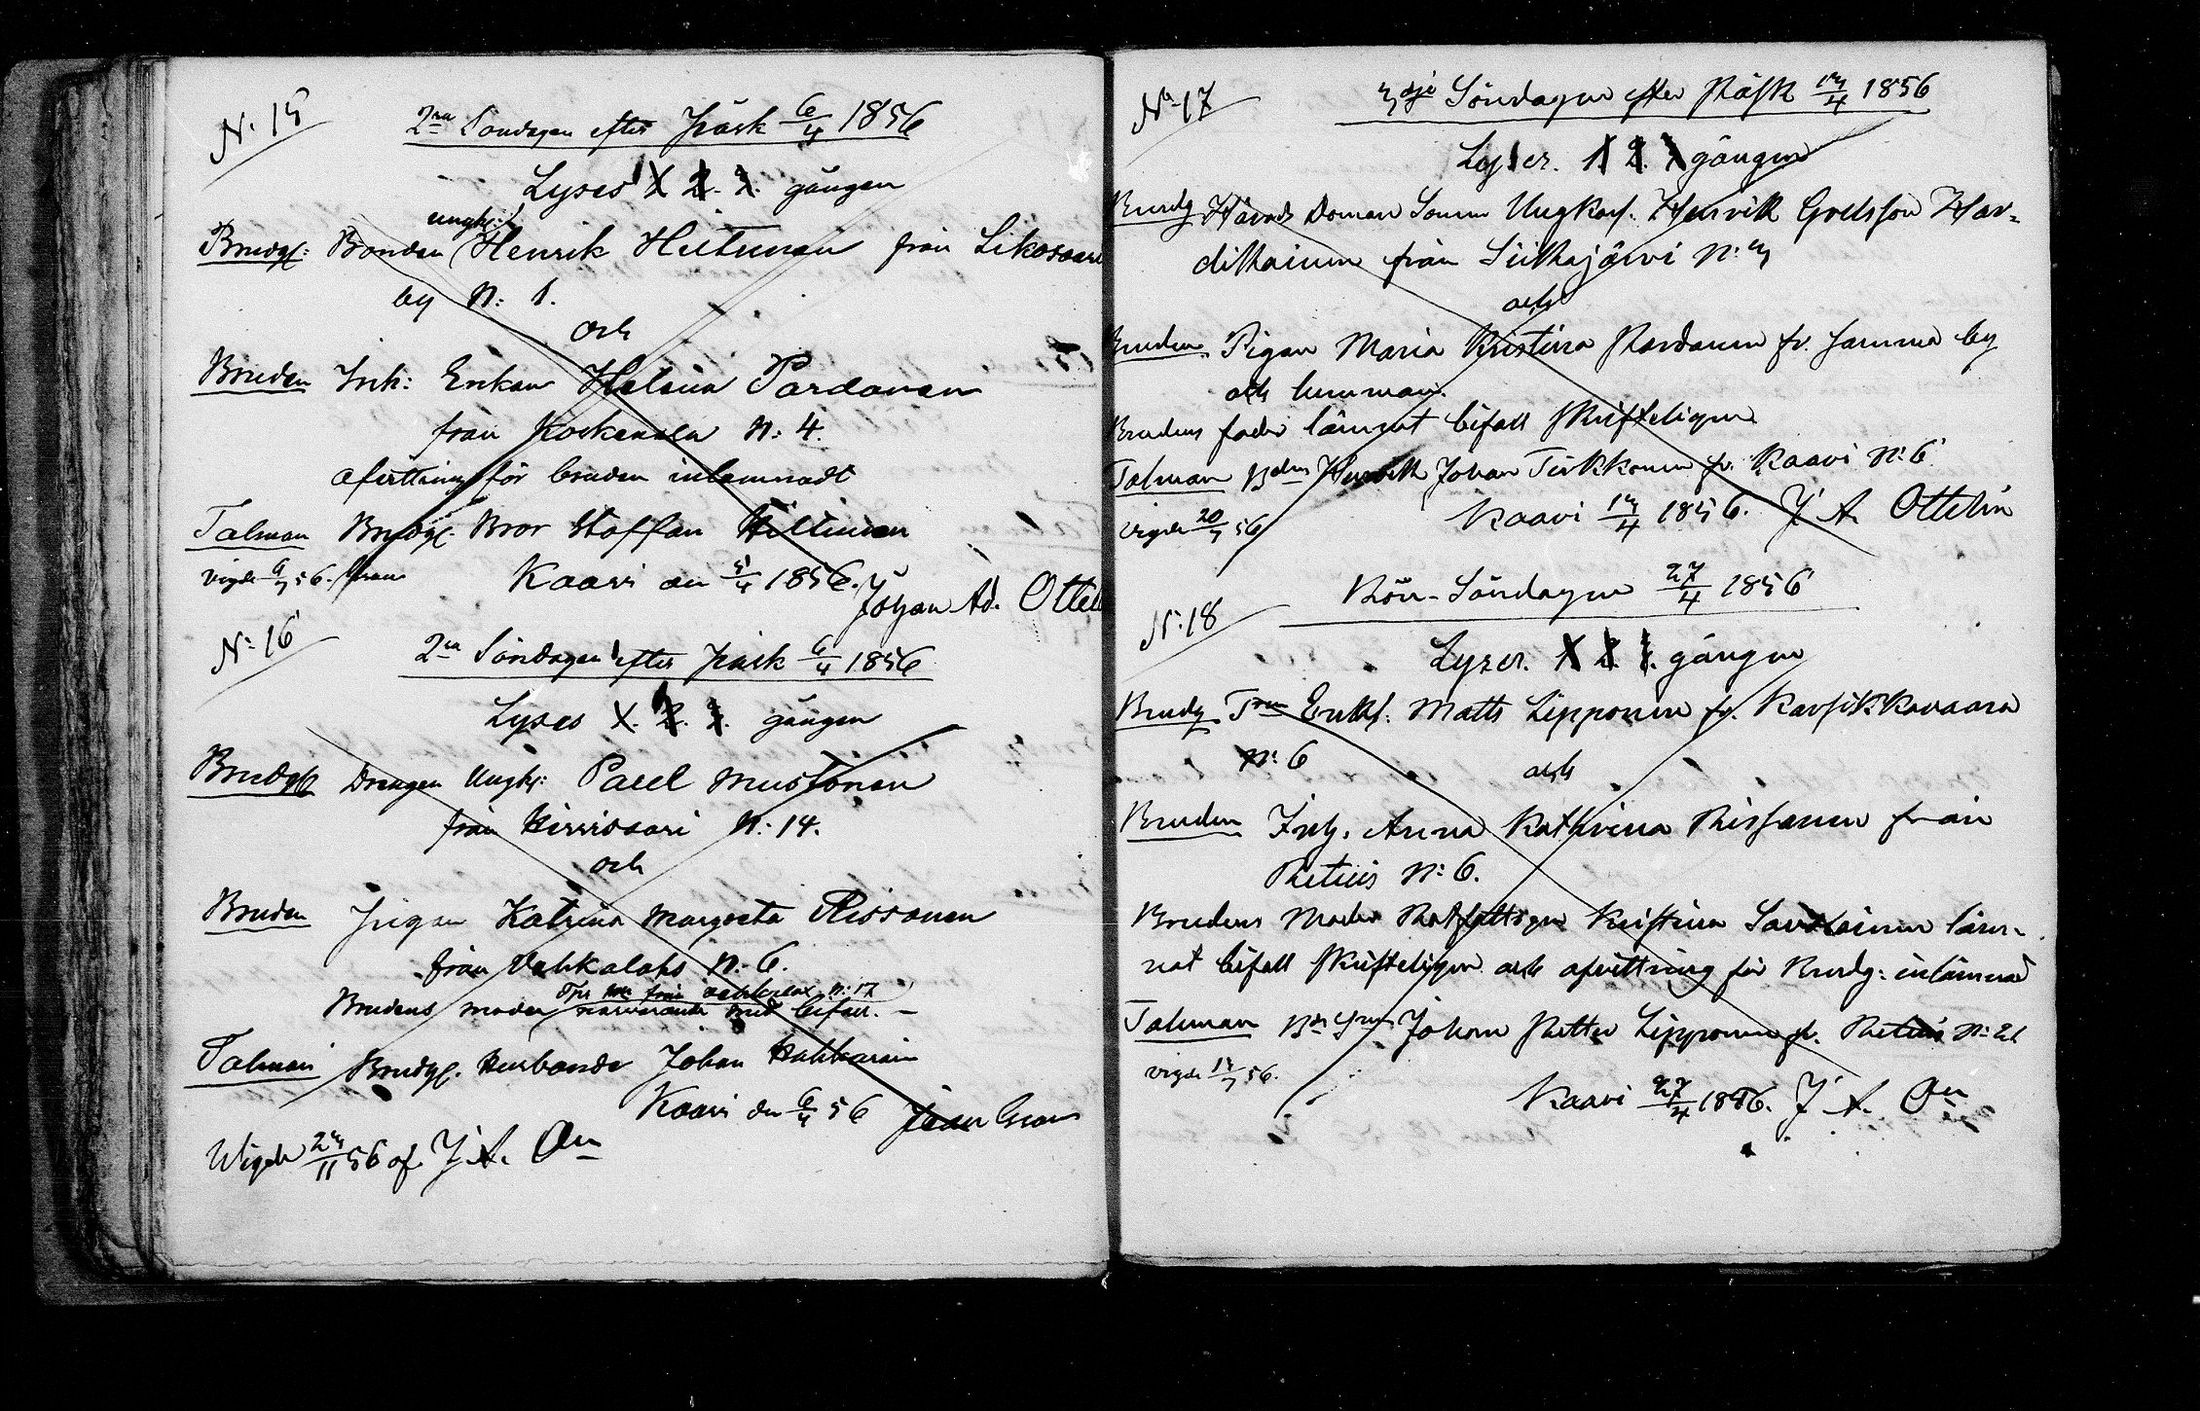 N: 15
2ra Söndagen efter Påsk 6/4 1856
Lyses 1 2. 3. gången
Brudg: Bonden ungk: Henrik Hiltunen från Likosaari
by N: 1.
och
Bruden Ink: Enkan Helena Pardanen
från Koskenala N: 4.
afvittring för bruden inlemnadt
Talman Brudg. Bror Staffan Hiltunen
vigde 6/7 56.
Kaavi den 5/4 1856. Johan Ad. Ottel
N: 16
2ra Söndagen efter Påsk 6/4 1856
Lyses 1. 2. 3. gången
Brudg Drengen Ungk: Paul Mustonen
från Hirvisaari N: 14.
och
Bruden Pigan Katrina Margreta Rissanen
från Vehkalaks N: 6.
Brudens moder närvarande med befall.
Talman Brudg. Husbonde Johan
Kaavi den 6/4 56
Wigde 23/11 56 af J. A. On
N: 17
3dje Söndagen efter Påsk 13/4 1856
Lyser. 1 2. 3 gången
Brudg Härads Doman Sonen Ungkarl. Henrik Grelsson Har-
dikainen från Siikajärvi N: 3
och
Bruden Pigan Maria Kristina Pardanen fr. samma by
och nummer.
Brudens fader lämnat bifall skrifteligen
Talman Bden Henrik Johan Tirkkonen fr. Kaavi N: 6
vigde 20/7 56
Kaavi 13/4 1856. J. A. Ottelin
N: 18
Bön-Söndagen 27/4 1856
Lyser. 1 2. 3. gången
Brudg Enkl: Matts Lipponen fr. Karsikkovaara
N: 6
och
Bruden Inh. Anna Kathrina Rissanen från
Retuis N: 6.
Brudens Moder Kristina Savolainen läm-
nat bifall skrifteligen och afvittring för Brudg: inlämnad
Talman Johan Petter Lipponen fr. Retuis N: 21
vigde 13/7 56.
Kaavi 27/4 1856. J. A. On